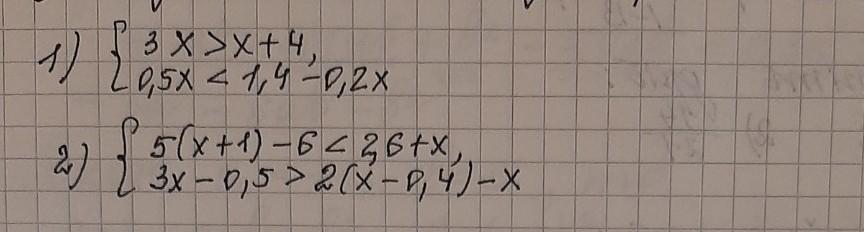 1) { 3x > x + 4,
0,5x < 1,4 - 0,2x
2) { 5(x+1) - 6 < 2,6 + x,
3x - 0,5 > 2(x - 0,4) - x